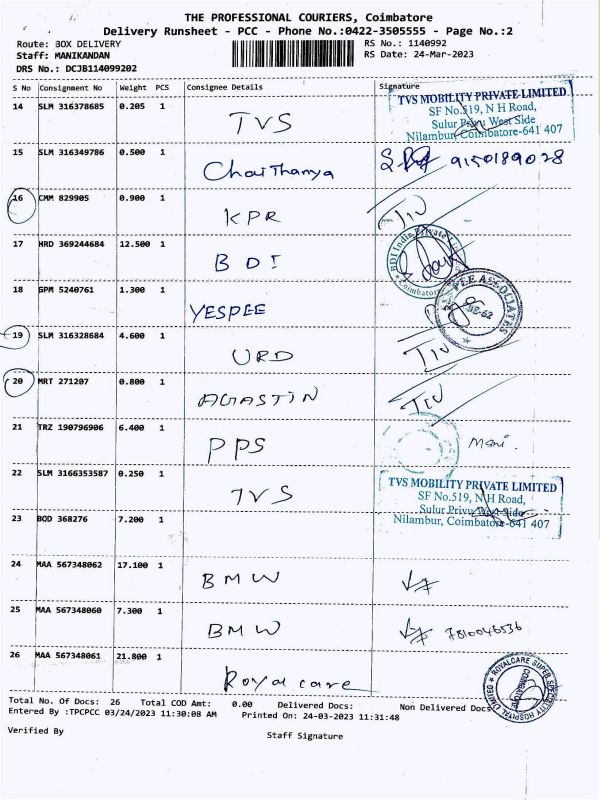 THE PROFESSIONAL COURIERS, Coimbatore
Delivery Runsheet - PCC - Phone No.:0422-3505555 - Page No.:2
Route: BOX DELIVERY RS No.: 1140992
Staff: MANIKANDAN RS Date: 24-Mar-2023
DRS No.: DCJB114099202
S No Consignment No Weight PCS Consignee Details Signature
14 SLM 316378685 0.205 1 TVS
TVS MOBILITY PRIVATE LIMITED
SF No.519, N H Road,
Sulur Privu West Side
Nilambur, Coimbatore-641 407
15 SLM 316349786 0.500 1 Chaithanya 9150189028
16 CMM 829905 0.900 1 KPR
17 HRD 369244684 12.500 1 BDI
BDI India Private
Coimbatore
18 GPM 5240761 1.300 1 YESPEE
ASSOCIATES
19 SLM 316328684 4.600 1 URD
20 MRT 271207 0.800 1 AGASTIN
21 TRZ 190796906 6.400 1 PPS Mani.
22 SLM 3166353587 0.250 1 TVS
TVS MOBILITY PRIVATE LIMITED
SF No.519, N H Road,
Sulur Privu West Side
Nilambur, Coimbatore-641 407
23 BOD 368276 7.200 1
24 MAA 567348062 17.100 1 BMW
25 MAA 567348060 7.300 1 BMW
26 MAA 567348061 21.800 1 Royal care
ROYALCARE SUPER SPECIALITY HOSPITAL LIMITED
COIMBATORE
Total No. Of Docs: 26 Total COD Amt: 0.00 Delivered Docs: Non Delivered Docs
Entered By :TPCPCC 03/24/2023 11:30:08 AM Printed On: 24-03-2023 11:31:48
Verified By Staff Signature